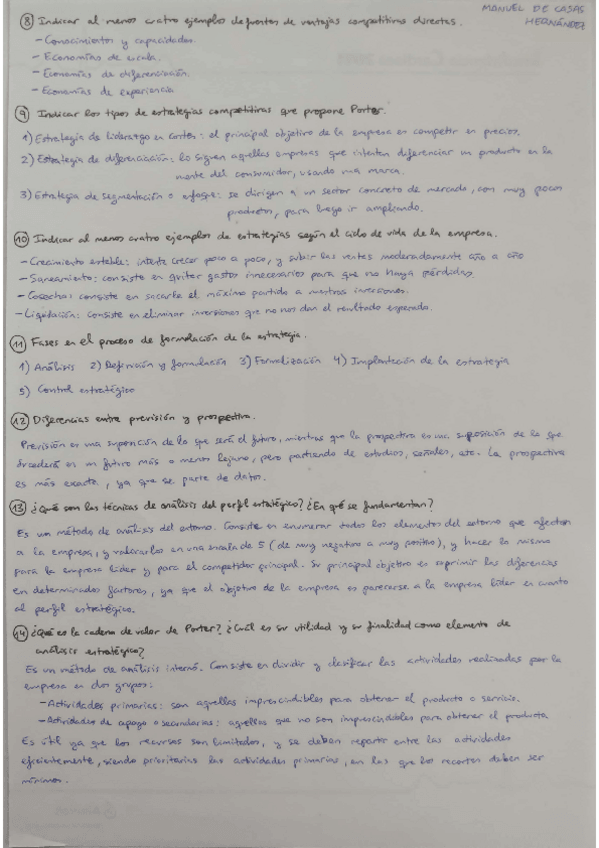 MANUEL DE CASAS
HERNÁNDEZ
8 Indicar al menos cuatro ejemplos de fuentes de ventajas competitivas directas.
- Conocimientos y capacidades.
- Economías de escala.
- Economías de diferenciación.
- Economías de experiencia
9 Indicar los tipos de estrategias competitivas que propone Porter.
1) Estrategia de liderazgo en costes: el principal objetivo de la empresa es competir en precios.
2) Estrategia de diferenciación: lo siguen aquellas empresas que intentan diferenciar un producto en la
mente del consumidor, usando una marca.
3) Estrategia de segmentación o enfoque: se dirigen a un sector concreto de mercado, con muy pocos
productos, para luego ir ampliando.
10 Indicar al menos cuatro ejemplos de estrategias según el ciclo de vida de la empresa.
- Crecimiento estable: intenta crecer poco a poco, y subir las ventas moderadamente año a año
- Saneamiento: consiste en quitar gastos innecesarios para que no haya pérdidas.
- Cosecha: consiste en sacarle el máximo partido a nuestras inversiones.
- Liquidación: consiste en eliminar inversiones que no nos dan el resultado esperado.
11 Fases en el proceso de formulación de la estrategia.
1) Análisis 2) Definición y formulación 3) Formalización 4) Implantación de la estrategia
5) Control estratégico
12 Diferencias entre previsión y prospectiva.
Previsión es una suposición de lo que será el futuro, mientras que la prospectiva es una suposición de lo que
sucederá en un futuro más o menos lejano, pero partiendo de estudios, señales, etc. La prospectiva
es más exacta, ya que se parte de datos.
13 ¿Qué son las técnicas de análisis del perfil estratégico? ¿En qué se fundamentan?
Es un método de análisis del entorno. Consiste en enumerar todos los elementos del entorno que afectan
a la empresa, y valorarlos en una escala de 5 (de muy negativo a muy positivo), y hacer lo mismo
para la empresa líder y para el competidor principal. Su principal objetivo es suprimir las diferencias
en determinados factores, ya que el objetivo de la empresa es parecerse a la empresa líder en cuanto
al perfil estratégico.
14 ¿Qué es la cadena de valor de Porter? ¿Cuál es su utilidad y su finalidad como elemento de
análisis estratégico?
Es un método de análisis interno. Consiste en dividir y clasificar las actividades realizadas por la
empresa en dos grupos:
- Actividades primarias: son aquellas imprescindibles para obtener el producto o servicio.
- Actividades de apoyo o secundarias: aquellas que no son imprescindibles para obtener el producto
Es útil ya que los recursos son limitados, y se deben repartir entre las actividades
eficientemente, siendo prioritarias las actividades primarias, en las que los recortes deben ser
mínimos.